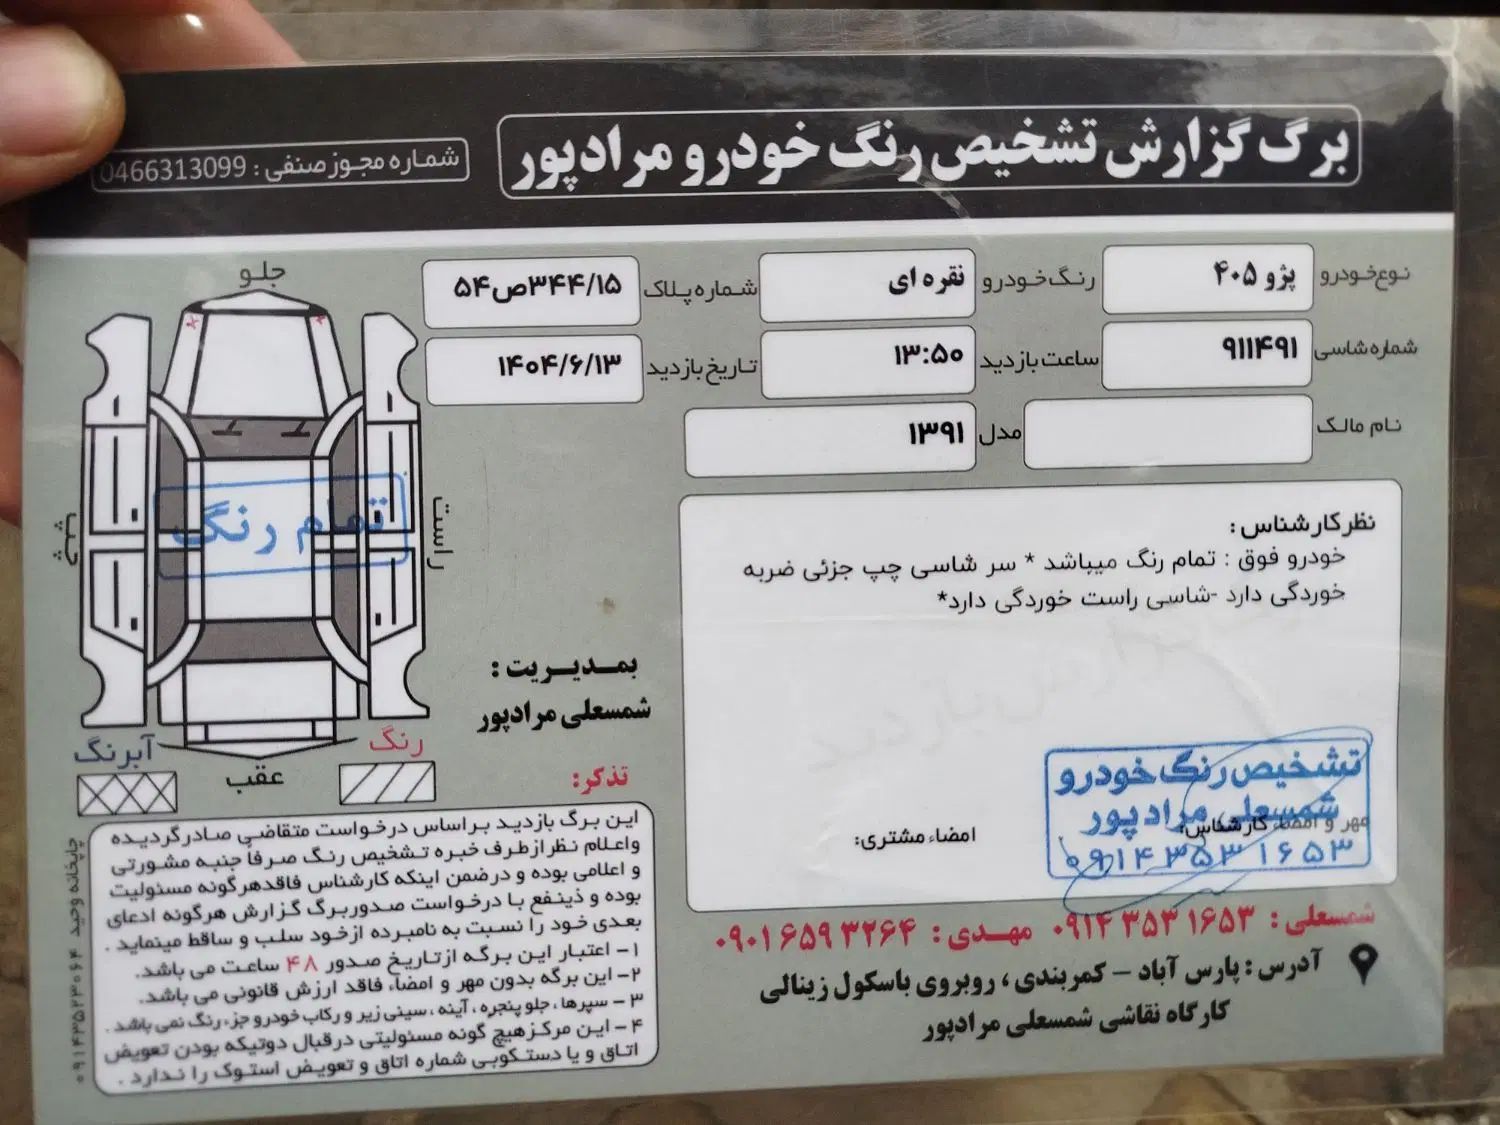 برگ گزارش تشخیص رنگ خودرو مرادپور
شماره مجوز صنفی : 0466313099
نوع خودرو پژو ۴۰۵ رنگ خودرو نقره ای شماره پلاک ۵۴ص۳۴۴/۱۵
شماره شاسی ۹۱۱۴۹۱ ساعت بازدید ۱۳:۵۰ تاریخ بازدید ۱۴۰۴/۶/۱۳
نام مالک مدل ۱۳۹۱
جلو
راست
چپ
تمام رنگ
عقب
رنگ
آبرنگ
نظر کارشناس :
خودرو فوق : تمام رنگ میباشد * سر شاسی چپ جزئی ضربه
خوردگی دارد -شاسی راست خوردگی دارد*
بمدیریت :
شمسعلی مرادپور
مهر و امضاء کارشناس:
امضاء مشتری:
تشخیص رنگ خودرو
شمسعلی مرادپور
۰۹۱۴ ۳۵۳ ۱۶۵۳
شمسعلی : ۰۹۱۴ ۳۵۳ ۱۶۵۳ مهدی : ۰۹۰۱ ۶۵۹ ۳۲۶۴
آدرس : پارس آباد - کمربندی ، روبروی باسکول زینالی
کارگاه نقاشی شمسعلی مرادپور
تذکر:
این برگ بازدید بر اساس درخواست متقاضی صادر گردیده
واعلام نظر از طرف خبره تشخیص رنگ صرفاً جنبه مشورتی
و اعلامی بوده و درضمن اینکه کارشناس فاقد هرگونه مسئولیت
بوده و ذینفع با درخواست صدور برگ گزارش هرگونه ادعای
بعدی خود را نسبت به نامبرده از خود سلب و ساقط مینماید .
۱- اعتبار این برگه از تاریخ صدور ۴۸ ساعت می باشد.
۲- این برگه بدون مهر و امضاء فاقد ارزش قانونی می باشد.
۳ - سپرها ، جلو پنجره ، آینه ، سینی زیر و رکاب خودرو جزء رنگ نمی باشد .
۴- این مرکز هیچ گونه مسئولیتی در قبال دوتیکه بودن تعویض
اتاق و یا دستکوبی شماره اتاق و تعویض استوک را ندارد .
چاپخانه وحید ۰۹۱۴۳۵۲۳۰۶۴